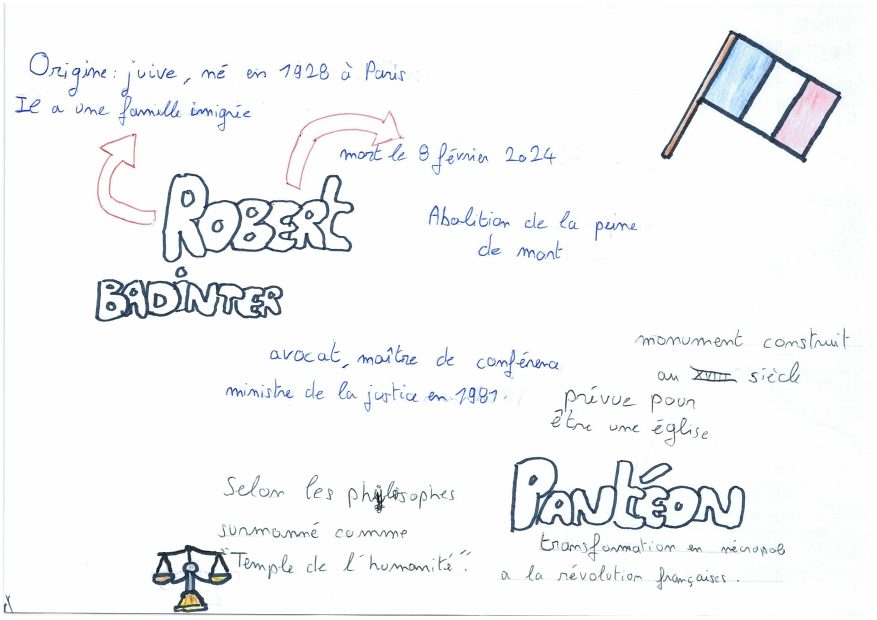 Origine: juive, né en 1928 à Paris
Il a une famille imigrée
mort le 8 février 2024
ROBERt
BADINTER
Abolition de la peine
de mort
avocat, maître de conférence
ministre de la justice en 1981.
monument construit
au XVIII siècle
prévue pour
être une église
PANtÉON
transformation en nécropole
a la révolution françaises.
Selon les philosophes
surnommé comme
"Temple de l'humanité".